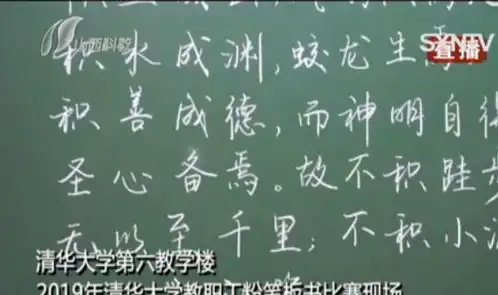 山西科教
SXNTV
直播
积水成渊,蛟龙生焉
积善成德,而神明自得
圣心备焉。故不积跬步
无以至千里;不积小流
清华大学第六教学楼
2019年清华大学教职工粉笔板书比赛现场